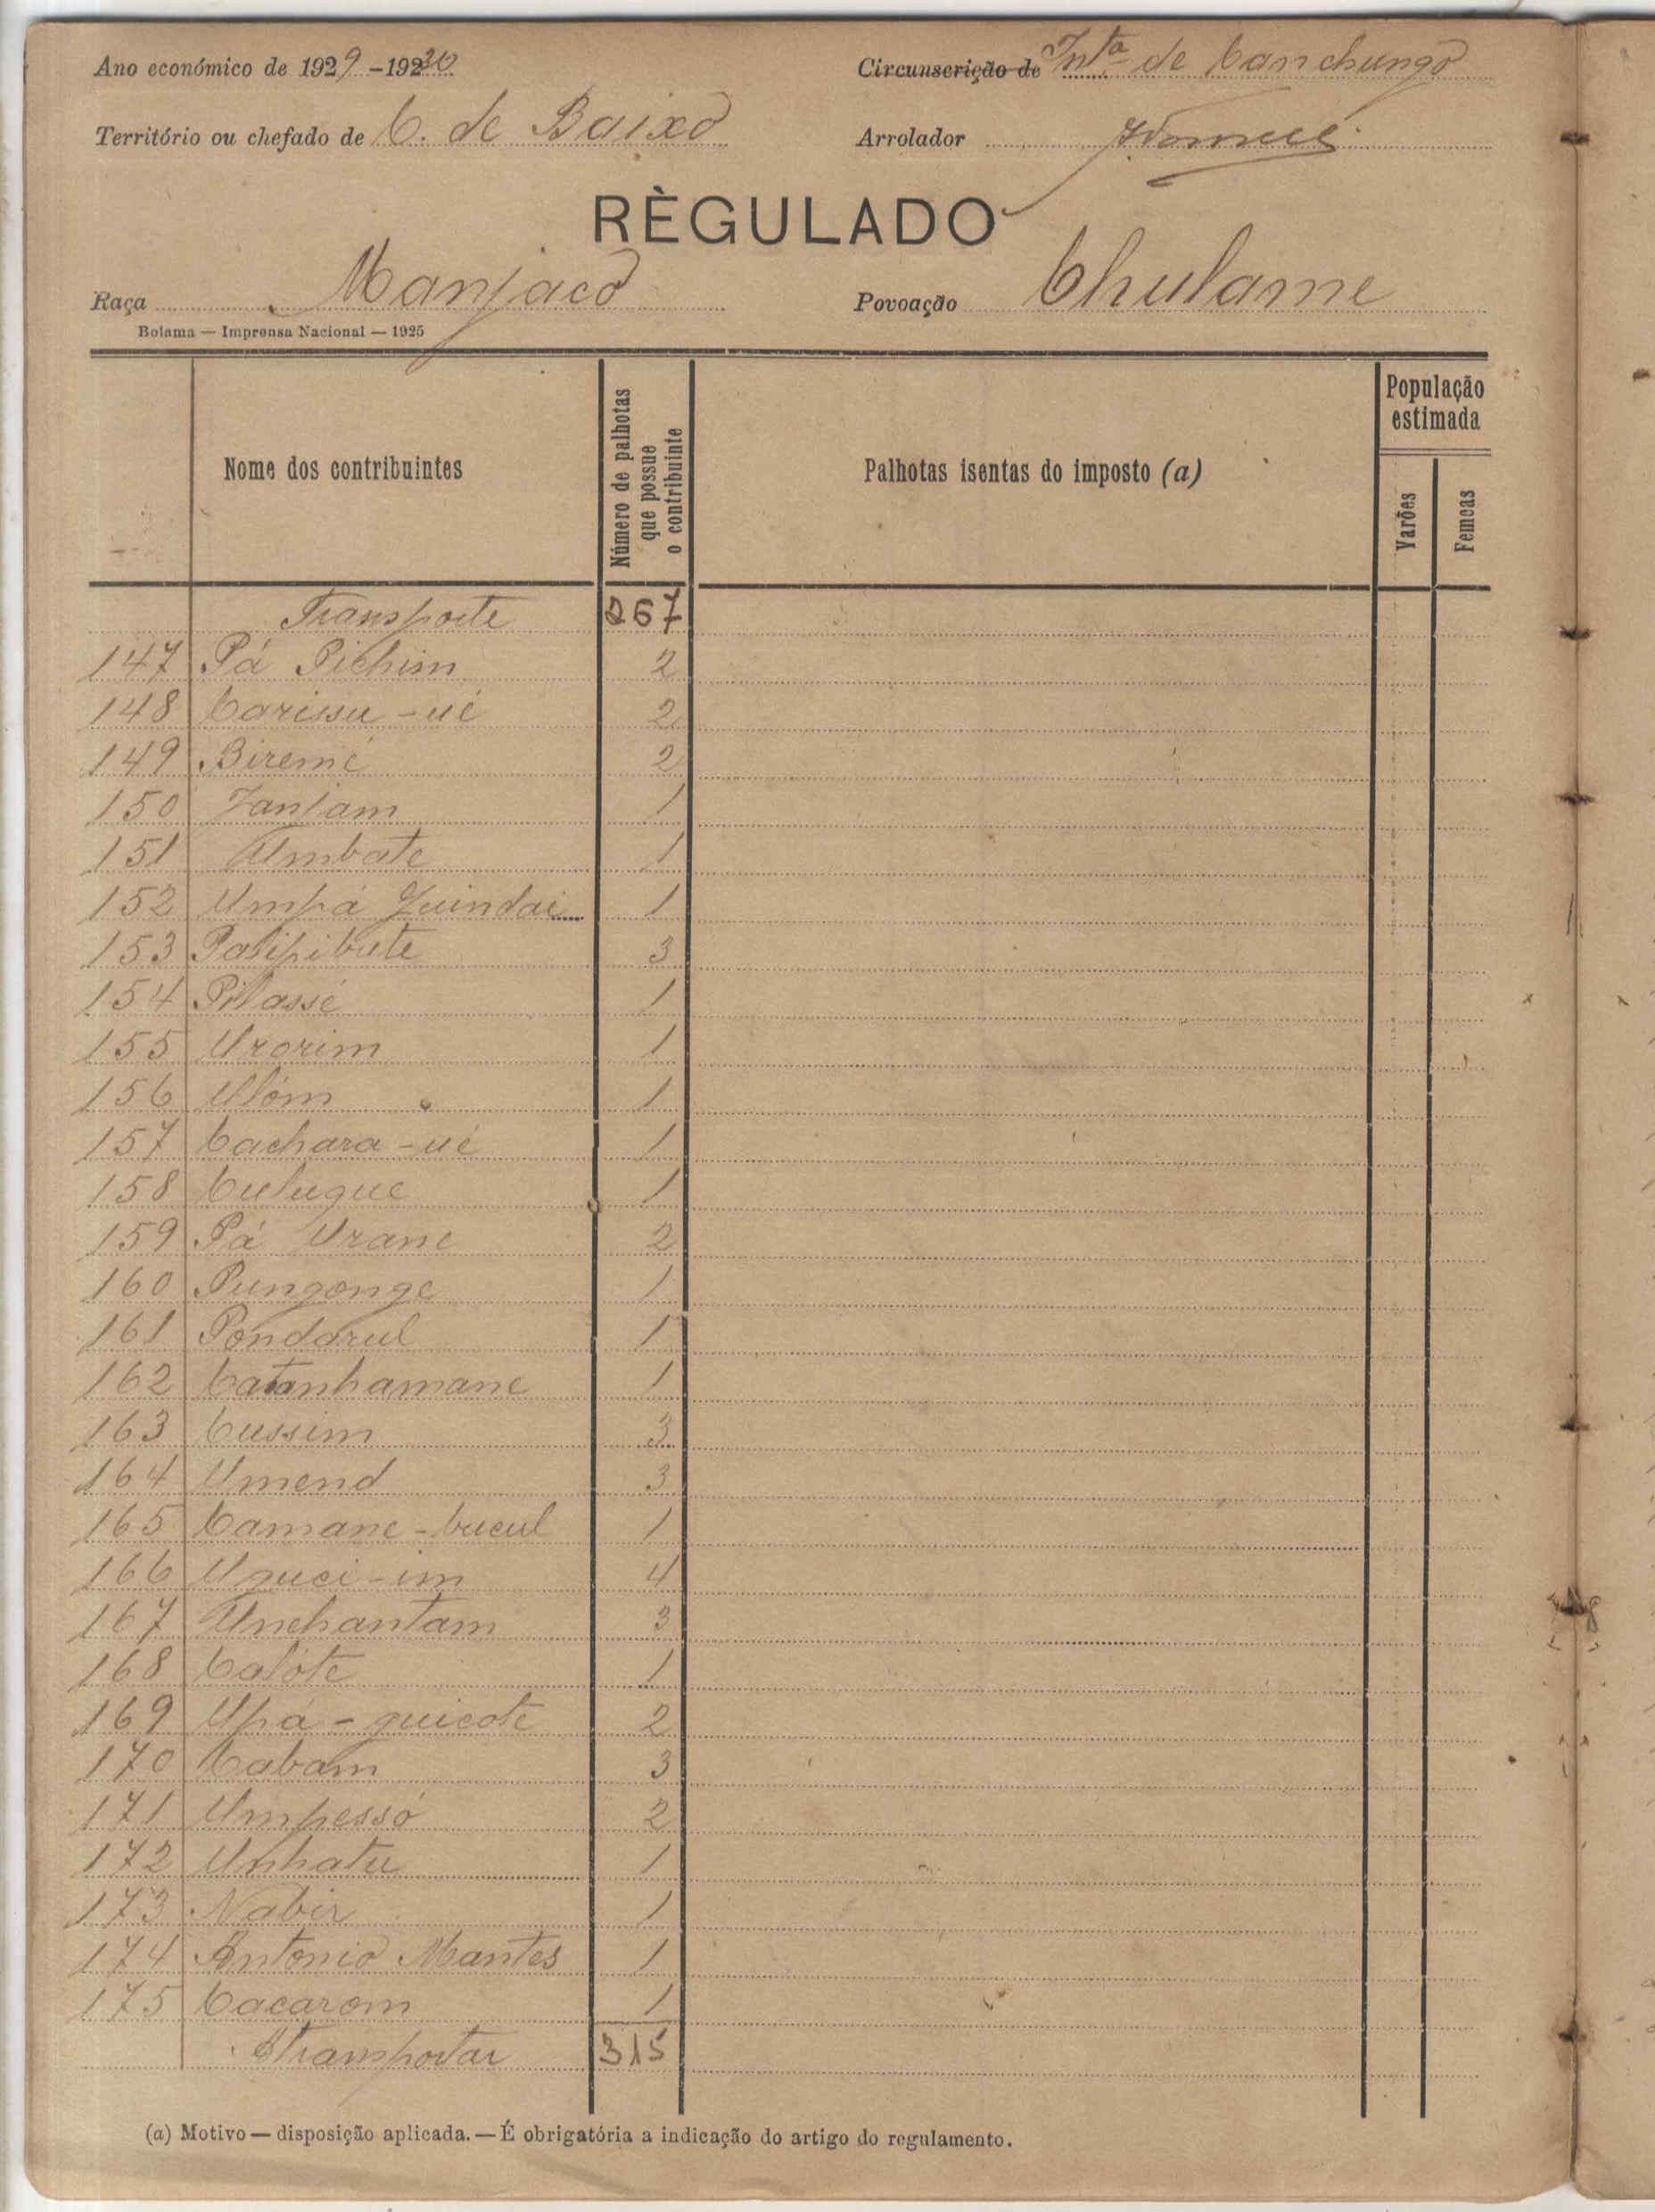 Ano económico de 1929-1930 Circunscrição de Int.ª de Canchungo
Território ou chefado de C. de Baixo Arrolador
RÈGULADO
Raça Manjaco Povoação Chulame
Bolama — Imprensa Nacional — 1925
Nome dos contribuintes
Número de palhotas que possue o contribuinte
Palhotas isentas do imposto (a)
População estimada
Varões
Femeas
Transporte 267
147 Pá Pichim 2
148 Carissu-ué 2
149 Biremé 2
150 Janjam 1
151 Umbate 1
152 Umpá Quindai 1
153 Patipibute 3
154 Pilassé 1
155 Urorim 1
156 Ulóm 1
157 Cachara-ué 1
158 Culugue 1
159 Pá Urane 2
160 Pungonge 1
161 Pondarul 1
162 Catanhamane 1
163 Cussim 3
164 Umend 3
165 Camane-bucul 1
166 Uguci-im 4
167 Unchantam 3
168 Calóte 1
169 Upá-quicote 2
170 Cabam 3
171 Umpessó 2
172 Unhatu 1
173 Nabir 1
174 Antonio Mantes 1
175 Cacarom 1
A transportar 315
(a) Motivo — disposição aplicada. — É obrigatória a indicação do artigo do regulamento.